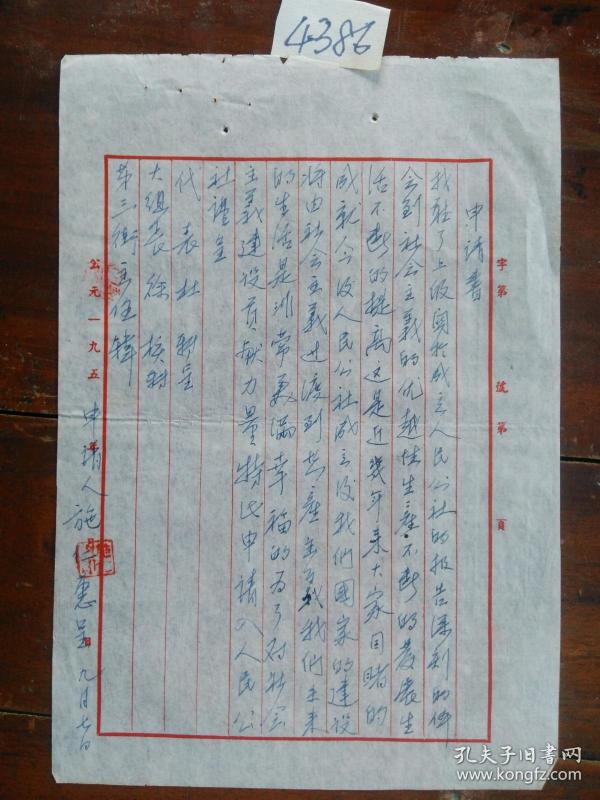 4386
字第 號第 頁
申請書
我聽了上级関於成立人民公社的报告深刻的体
会到社会主義的优越性生產不断的發展生
活不断的提高这是近幾年来大家目睹的
成就今後人民公社成立後我們國家的建设
将由社会主義过渡到共產主義我們未来
的生活是非常美滿幸福的为了对社会
主義建设贡献力量特此申請入人民公
社謹呈
代表杜 轉呈
大组长徐 核对
第三街主任韓
公元一九五
申請人施 惠呈 九月七日
孔夫子旧书网
www.kongfz.com